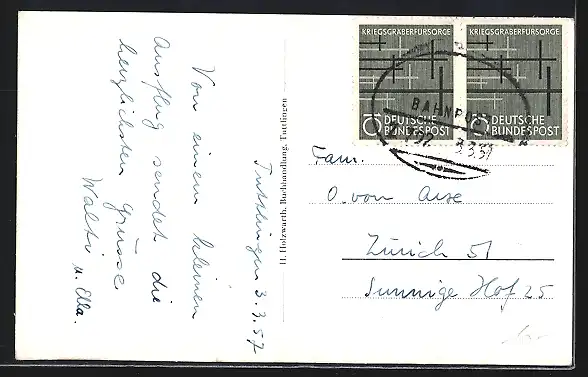 Tuttlingen 3.3.57
Von einem kleinen
Ausflug sendet die
herzlichsten Grüsse
Walti u. Ella.
H. Holzwarth, Buchhandlung, Tuttlingen
KRIEGSGRÄBERFÜRSORGE
5 DEUTSCHE
BUNDESPOST
KRIEGSGRÄBERFÜRSORGE
5 DEUTSCHE
BUNDESPOST
BAHNPOST
3.3.57
Fam.
O. von Arx
Zürich 51
Sunnige Hof 25